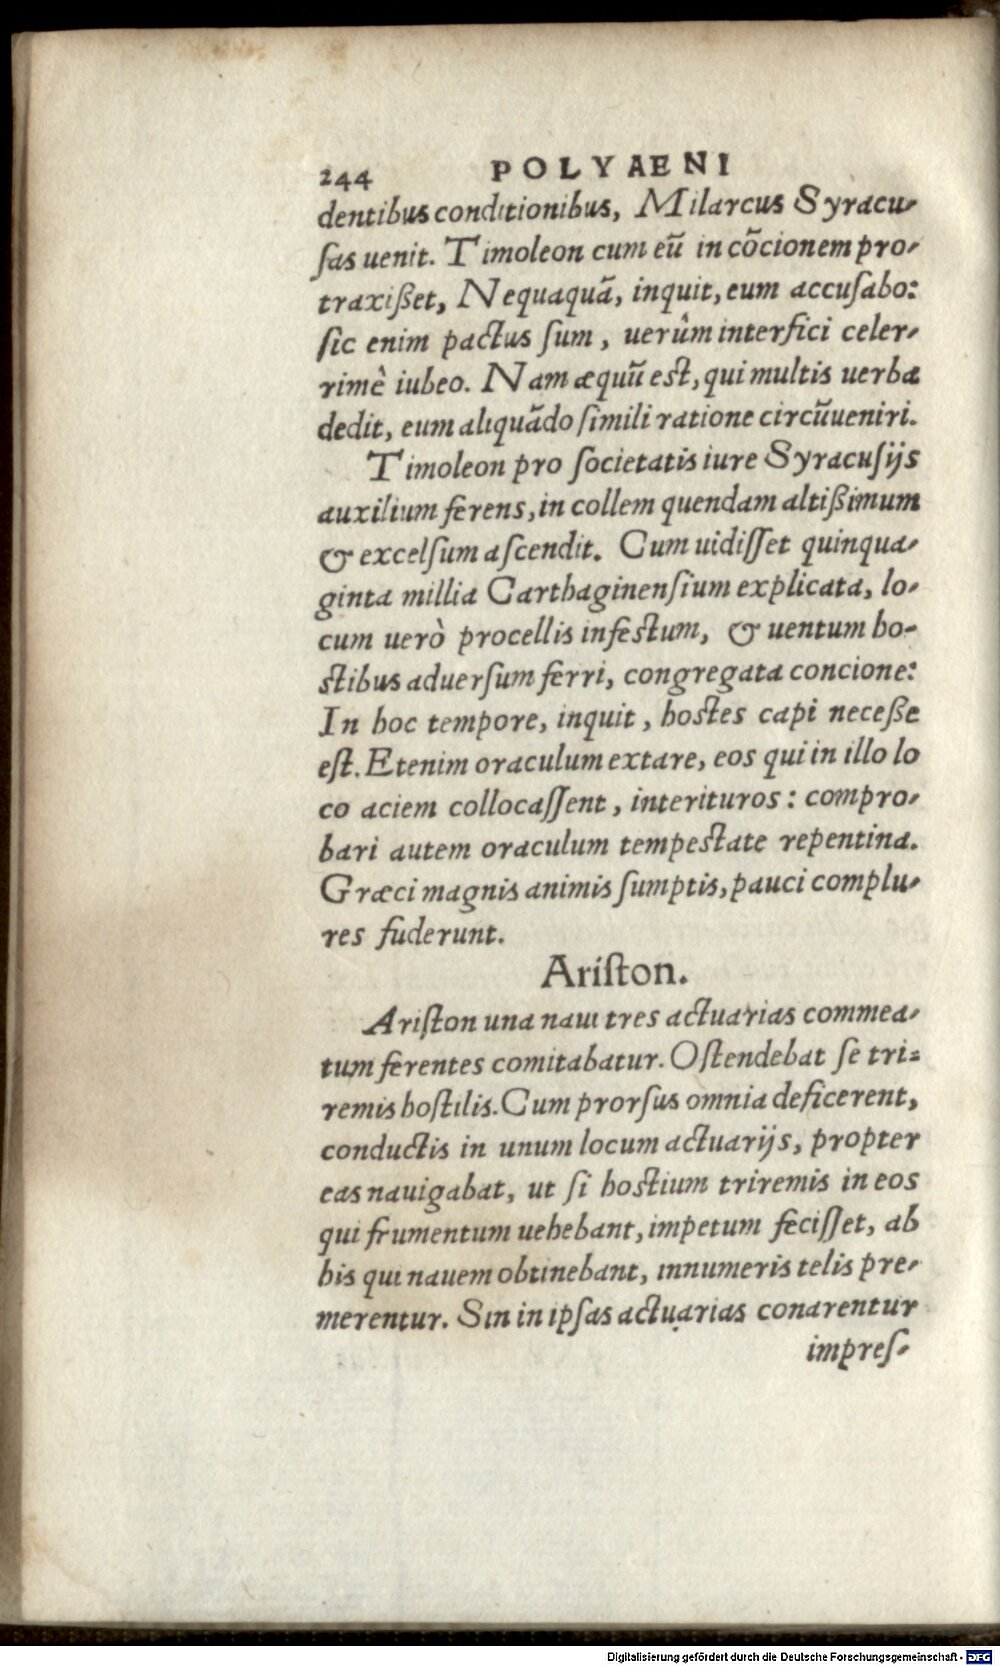 244 POLYAENI
dentibus conditionibus, Milarcus Syracu-
ſas uenit. Timoleon cum eũ in cõcionem pro-
traxißet, Nequaquã, inquit, eum accuſabo:
ſic enim pactus ſum, uerûm interfici celer-
rimè iubeo. Nam æquũ est, qui multis uerba
dedit, eum aliquãdo ſimili ratione circũueniri.
Timoleon pro ſocietatis iure Syracuſijs
auxilium ferens, in collem quendam altißimum
& excelſum aſcendit. Cum uidiſſet quinqua-
ginta millia Carthaginenſium explicata, lo-
cum uerò procellis infestum, & uentum ho-
stibus aduerſum ferri, congregata concione:
In hoc tempore, inquit, hostes capi neceße
eſt. Etenim oraculum extare, eos qui in illo lo
co aciem collocaſſent, interituros: compro-
bari autem oraculum tempestate repentina.
Græci magnis animis ſumptis, pauci complu-
res fuderunt.
Ariſton.
Ariſton una naui tres actuarias commea-
tum ferentes comitabatur. Oſtendebat ſe tri-
remis hoſtilis. Cum prorſus omnia deficerent,
conductis in unum locum actuarijs, propter
eas nauigabat, ut ſi hostium triremis in eos
qui frumentum uehebant, impetum feciſſet, ab
his qui nauem obtinebant, innumeris telis pre-
merentur. Sin in ipſas actuarias conarentur
impreſ-
Digitalisierung gefördert durch die Deutsche Forschungsgemeinschaft - DFG